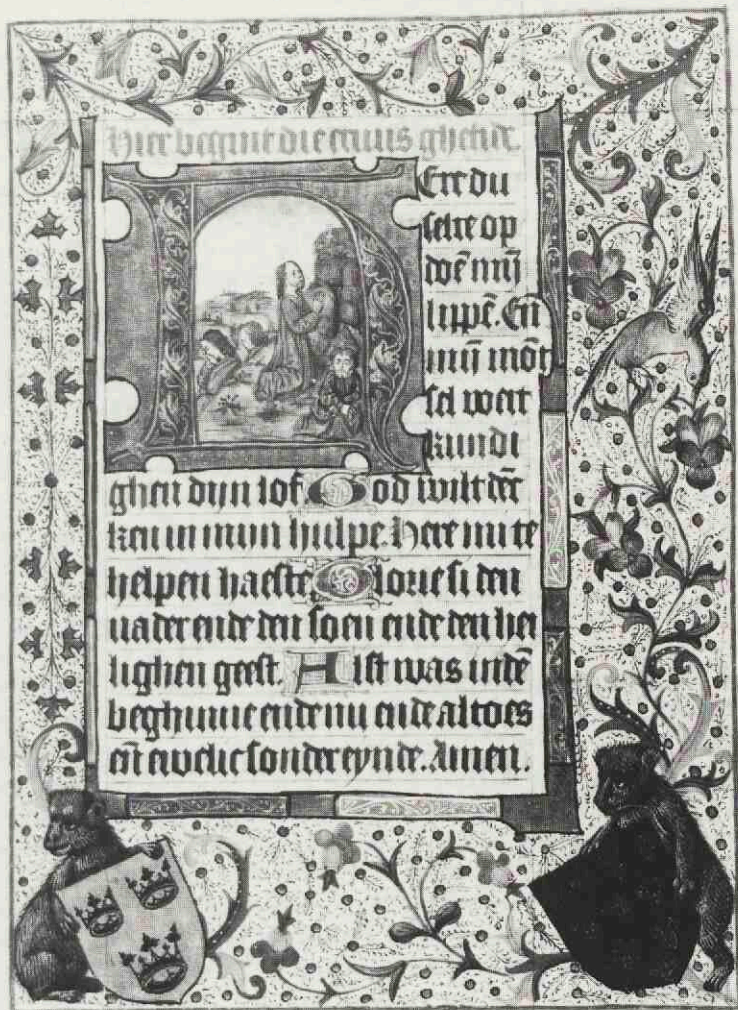 Hier begint die cruus ghetide.
Ere du
selte op
doē mij
lippē. Eñ
mij mōt
sel wert
kundi
ghen dijn lof. God wilt dēc
ken in mijn hulpe. Here mi te
helpen haeste Glorie si den
uader ende den soen ende den hei
lighen geest. Alst was indē
beghinne ende nu ende altoes
eñ ewelic sonder eynde. Amen.